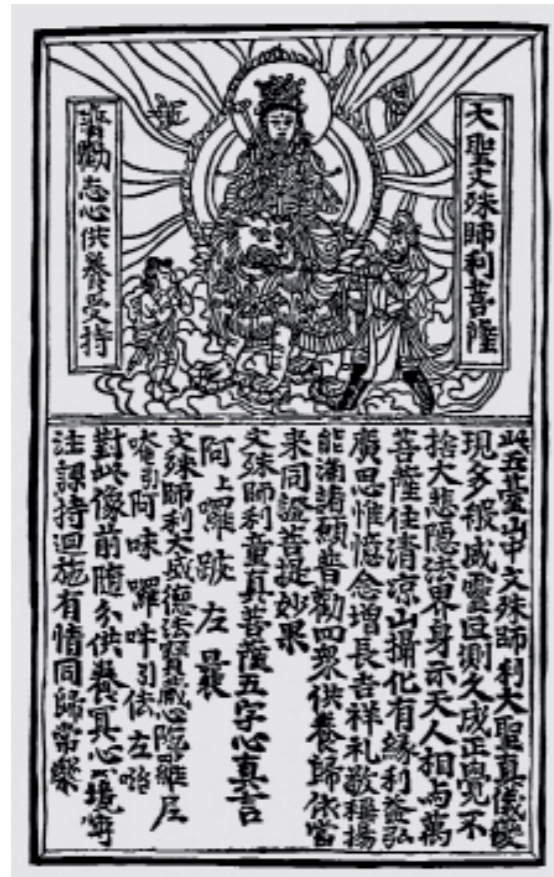 大聖文殊師利菩薩
普勸志心供養受持
此五臺山中文殊師利大聖真儀變
現多般威靈叵測久成正覺不
捨大悲隱法界身示天人相与萬
菩薩住清凉山攝化有緣利益弘
廣思惟憶念增長吉祥礼敬稱揚
能滿諸願普勸四眾供養歸依當
来同證菩提妙果
文殊師利童真菩薩五字心真言
阿上囉跛左曩
文殊師利大威德法寶藏心陁羅尼
唵引阿味囉吽引佉左
對此像前隨分供養冥心一境專
注課持迴施有情同歸常樂